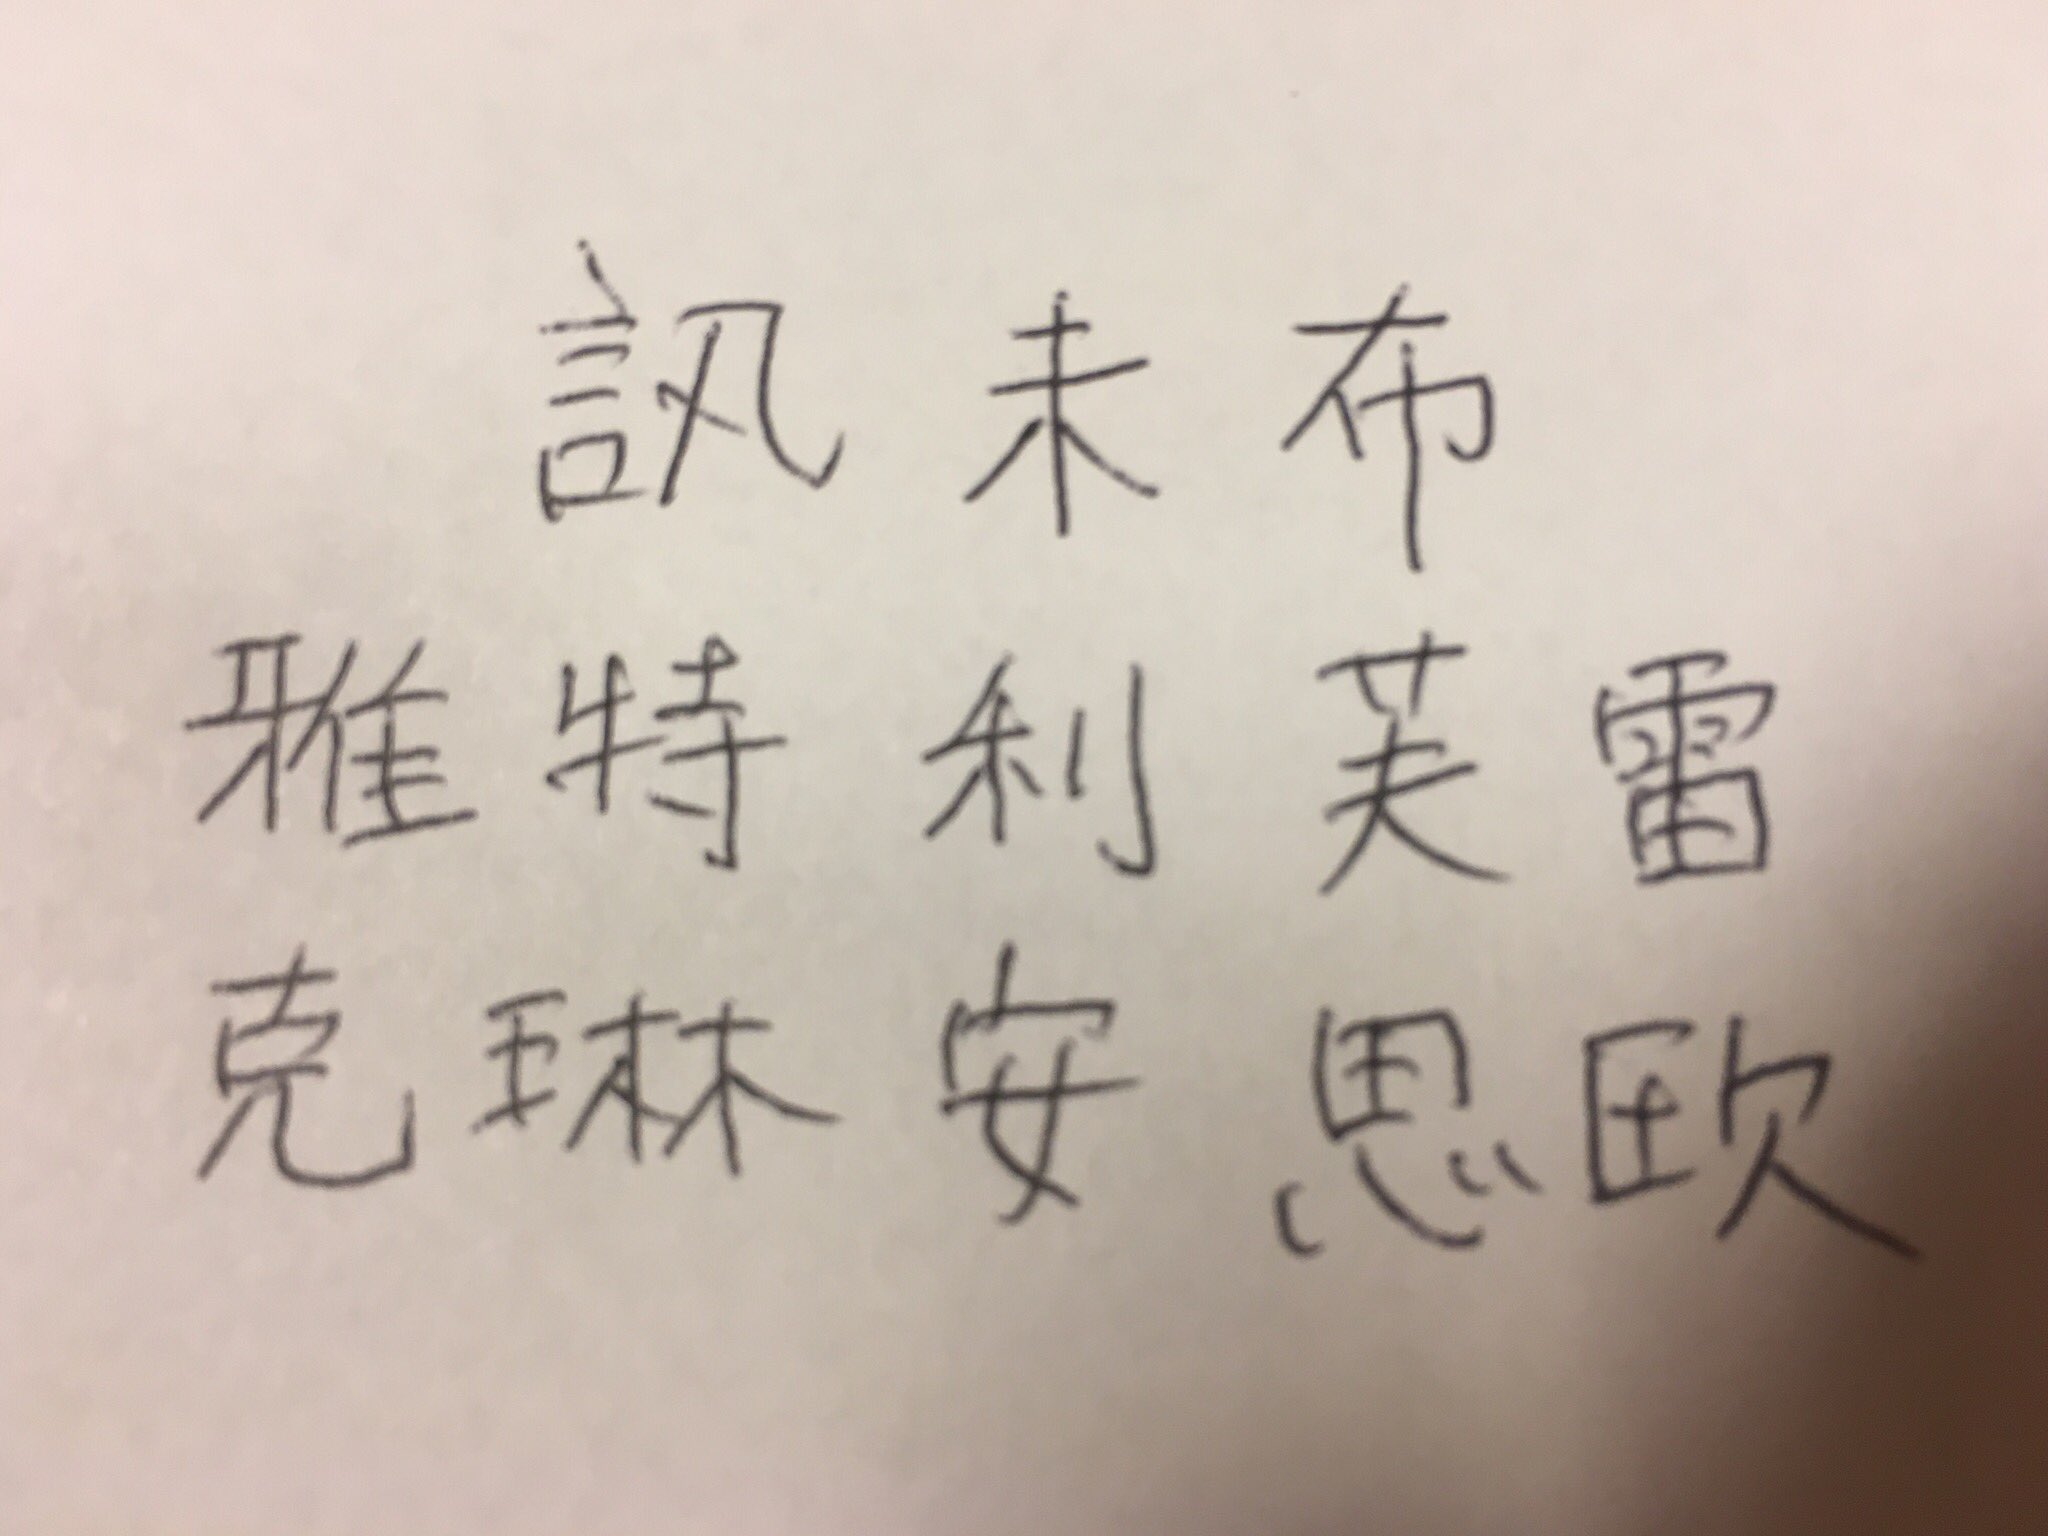 訊 未 布
雅 特 利 芙 雷
克 琳 安 思 欧